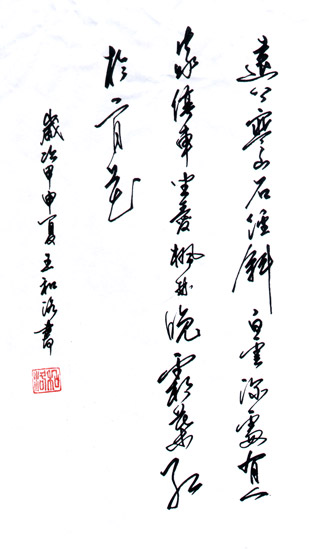 遠上寒山石徑斜白雲深處有人
家停車坐愛楓林晚霜葉紅
於二月花
歲次甲申夏王和洛書